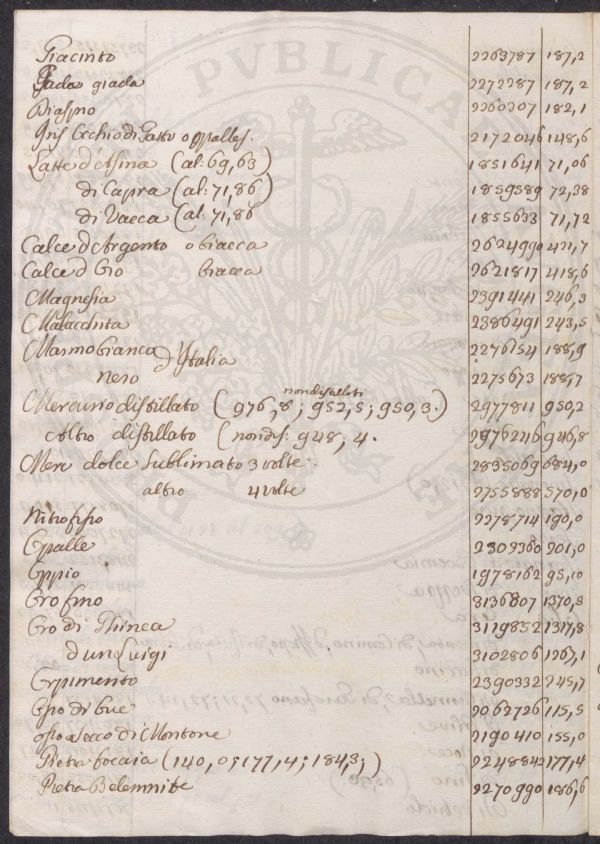 Giacinto 2263787 187,2
Giada giada 2272287 187,2
Diaspro 2260307 182,1
Iris Occhio di Gatto o opalles. 2172046 148,6
Latte d'Asina (al: 69,63) 1851641 71,06
di Capra (al: 71,86) 1859589 72,38
di Vacca (al: 71,86 1855633 71,72
Calce d'Argento o biacca 2624990 421,7
Calce d Oro biacca 2621817 418,6
Magnesia 2391441 246,3
Malacchita 2386491 243,5
Marmo bianca d'Italia 2276154 188,9
nero 2275673 188,7
nondistillati
Mercurio distillato (976,8; 952,5; 950,3.) 2977811 950,2
Altro distillato (nondis: 948,4. 2976246 946,8
Merc dolce sublimato 3 volte. 2835069 684,0
altro 4 volte 2755888 570,0
Nitro fisso 2278714 190,0
Opalle 2303360 201,0
Oppio 1978162 95,10
Oro fino 3136807 1370,3
Oro di Ghinea 3119852 1317,8
d'un Luigi 3102806 1267,1
Orpimento 2390332 245,7
Osso di bue 2062726 115,5
osso secco di Montone 2190410 155,0
Pietra focaia (140,0; 177,4; 184,3;) 2248842 177,4
Pietra Belemnite 2270990 186,6
PVBLICA